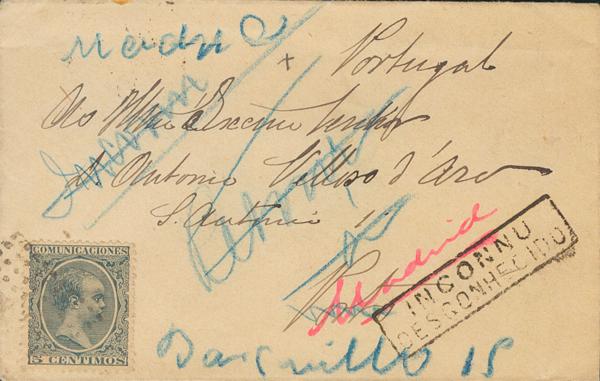 Madrid
Portugal
Ao Illmo é Excmo Senhor
Antonio Velloso d'Aro
S. Antonio 11
Madrid
INCONNU
DESCONHECIDO
COMUNICACIONES
5 CENTIMOS
Barquillo 15